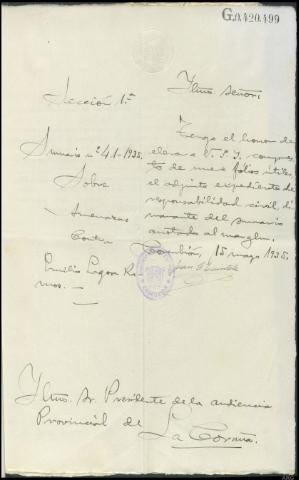 G.0.420.499
Iltmo Señor:
Sección 1ª
Sumario nº 41-1935
Sobre
Amenazas
Contra
Emilio Lagoa Ra-
mos.-
Tengo el honor de
elevar a V.S.I. compues-
to de nueve folios útiles,
el adjunto expediente de
responsabilidad civil, di-
manante del sumario
anotado al margen.
Corcubión, 15 mayo 1935.
Iltmo. Sr. Presidente de la audiencia
Provincial de La Coruña.